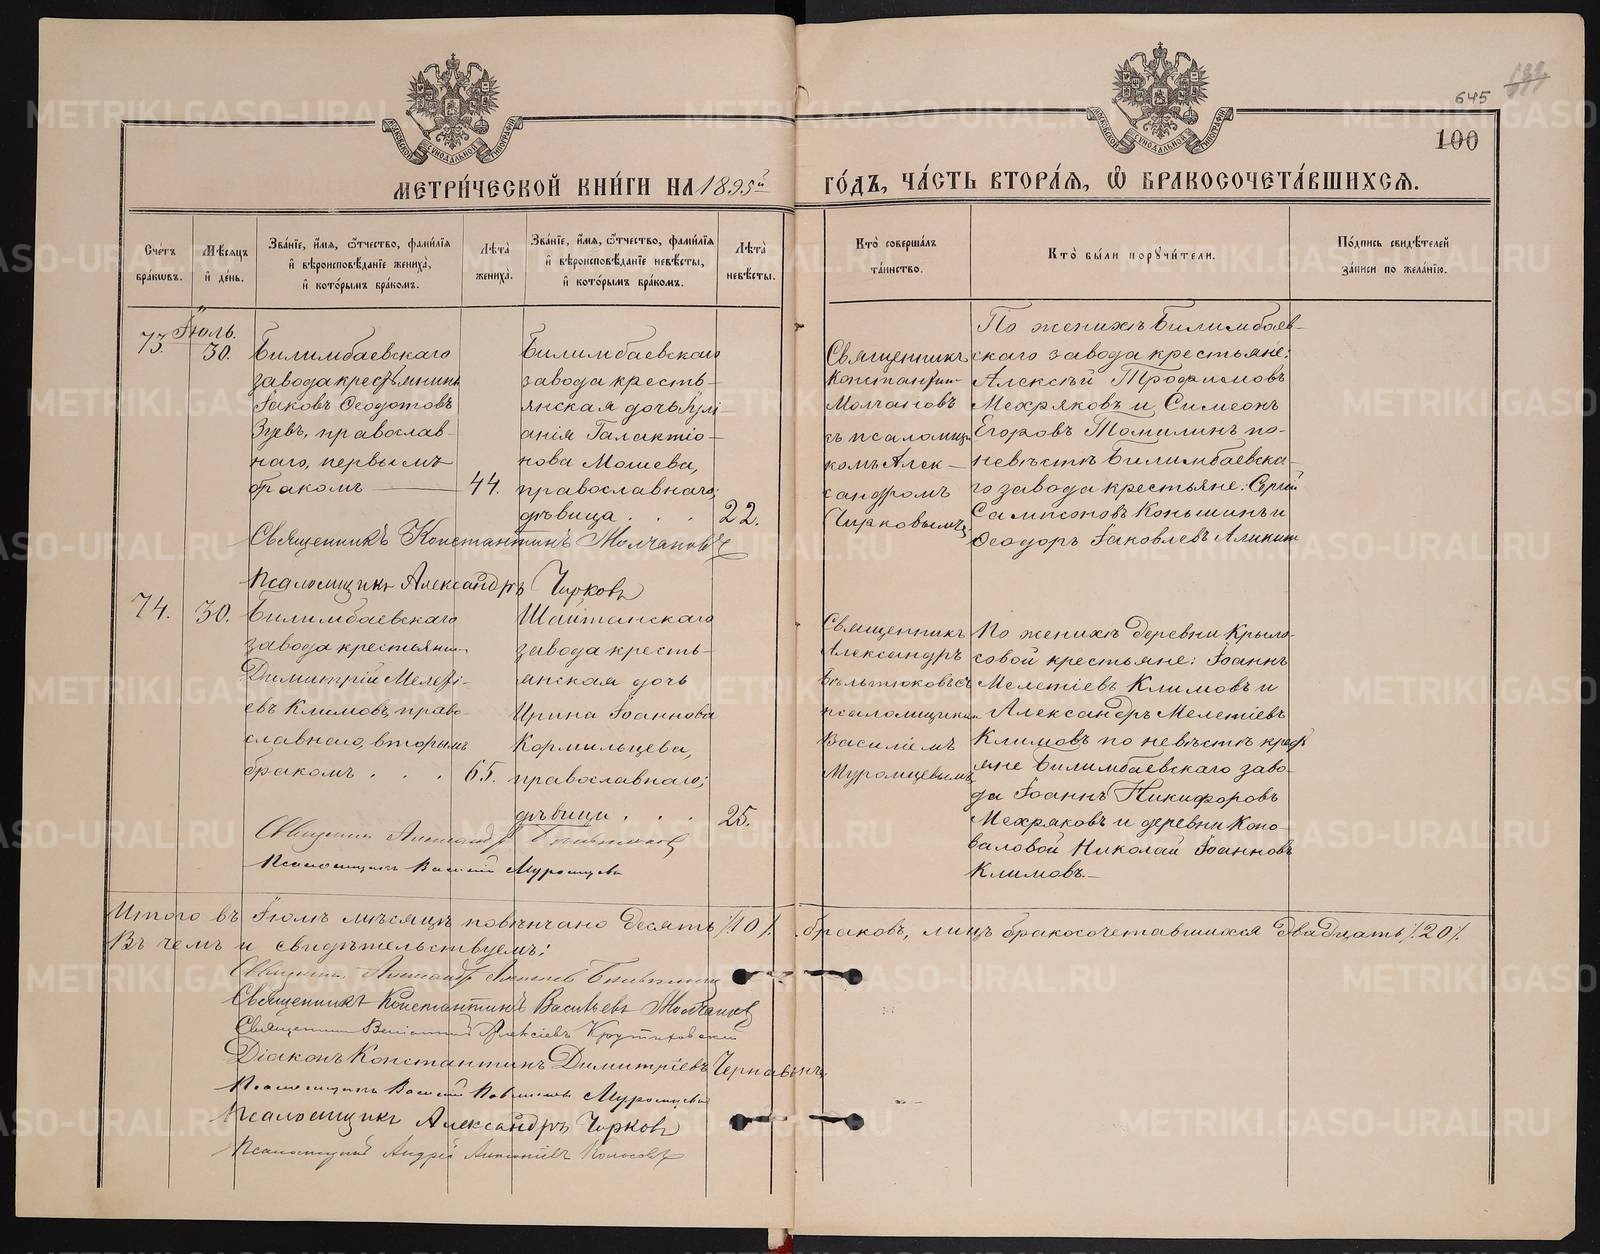 645
100
МЕТРИ́ЧЕСКОЙ КНИ́ГИ НА 1895й ГО́ДЪ, ЧА́СТЬ ВТОРА́Я, Ѿ БРАКОСОЧЕТА́ВШИХСЯ.
Сче́тъ бра́ковъ.
Мѣ́сяцъ и де́нь.
Зва́нїе, и́мя, ѻ́тчество, фами́лїя
и҆ вѣроисповѣ́данїе жениха̀,
и҆ кото́рымъ бра́комъ.
Лѣ́та жениха̀.
Зва́нїе, и́мя, ѻ́тчество, фами́лїя
и҆ вѣроисповѣ́данїе невѣ́сты,
и҆ кото́рымъ бра́комъ.
Лѣ́та невѣ́сты.
Кто̀ соверша́лъ та́инство.
Кто̀ бы́ли поручи́тели.
По́дпись свидѣ́телей за́писи по жела́нїю.
73. Іюль.
30.
Билимбаевскаго
завода крестьянинъ
Іаковъ Ѳеодотовъ
Зуевъ, православ-
наго, первымъ
бракомъ
44.
Билимбаевскаго
завода кресть-
янская дочь Іулі-
анія Галактіо-
нова Мошева,
православнаго;
дѣвица . . .
22.
Священникъ
Константинъ
Молчановъ
съ псаломщи-
комъ Алек-
сандромъ
Чирковымъ.
По женихѣ Билимбаев-
скаго завода крестьяне:
Алексѣй Трофимовъ
Мехряковъ и Симеонъ
Егоровъ Томилинъ по
невѣстѣ Билимбаевска-
го завода крестьяне: Сергѣй
Сампсоновъ Коньшинъ и
Ѳеодоръ Іаковлевъ Аликин
Священникъ Константинъ Молчановъ
Псаломщикъ Александръ Чирковъ
74.
30.
Билимбаевскаго
завода крестьянин
Димитрій Мелеті-
евъ Климовъ, право-
славнаго, вторымъ
бракомъ . . .
65.
Шайтанскаго
завода кресть-
янская дочь
Ирина Іоаннова
Кормильцева,
православнаго;
дѣвица . . .
25.
Священникъ
Александръ
Бѣльтюковъ съ
псаломщиком
Василіемъ
Муромцевымъ
По женихѣ деревни Крыло-
совой крестьяне: Іоаннъ
Мелетіевъ Климовъ и
Александръ Мелетіевъ
Климовъ по невѣстѣ крест
яне Билимбаевскаго заво-
да Іоаннъ Никифоровъ
Мехряковъ и деревни Коно-
валовой Николай Іоанновъ
Климовъ.
Священникъ Александръ Бѣльтюковъ
Псаломщикъ Василій Муромцевъ
Итого въ Іюлѣ мѣсяцѣ повѣнчано десять /10/. браковъ, лицъ бракосочетавшихся двадцать /20/.
Въ чемъ и свидѣтельствуемъ:
Священникъ Александръ Бѣльтюковъ
Священникъ Константинъ Васильевъ Молчановъ
Священникъ Веніаминъ Алексіевъ Крутиховскій
Діаконъ Константинъ Димитріевъ Чернавинъ.
Псаломщикъ Василій Павловъ Муромцевъ
Псаломщикъ Александръ Чирковъ
Псаломщикъ Андрей Колосовъ
METRIKI.GASO-URAL.RU